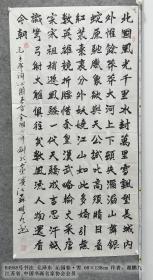 北國風光千里冰封萬里雪飄望長城内
外惟餘莽莽大河上下頓失滔滔山舞銀
蛇原馳蠟象欲與天公試比高須晴日看
紅裝素裹分外妖嬈江山如此多嬌引無
數英雄競折腰惜秦皇漢武略輸文采唐
宗宋祖稍遜風騷一代天驕成吉思汗只
識彎弓射大雕俱往矣數風流人物還看
今朝
毛澤東詞沁園春雪
书法 毛泽东 沁园春·雪 68×138cm 作者
江苏省 中国书画名家协会会员